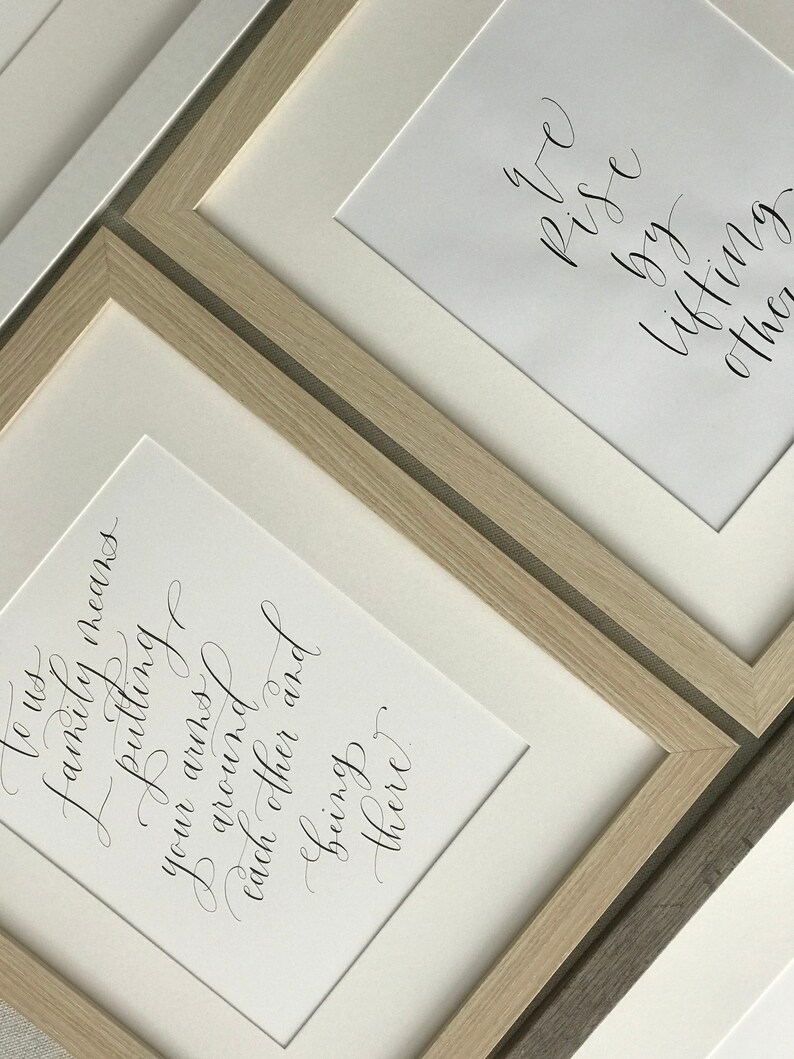 We
Rise
by
lifting
other
to us
family means
putting
your arms
around
each other and
being
there.